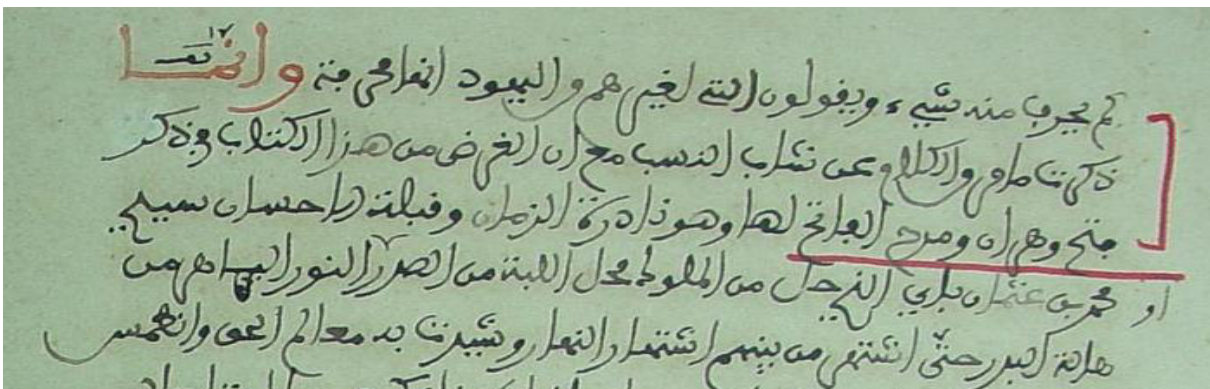 لم يحرف منه شيء ويقولون التي لغيرهم واليهود انها محرفة وانما
ذكرنا ما مر والكلام عن النسب مع ان الغرض من هذا الكتاب في ذكر
فتح وهران ومدح الفاتح لها وهو نادرة الزمان وقبلة الاحسان سيدي
محمد بن عثمان باي الذي حل من الملوك محل اللبة من الصدر النور الباهر من
هالة البدر حتى اشتهر من بينهم اشتهار النهار وشيدت به معالم الحق وانطمس